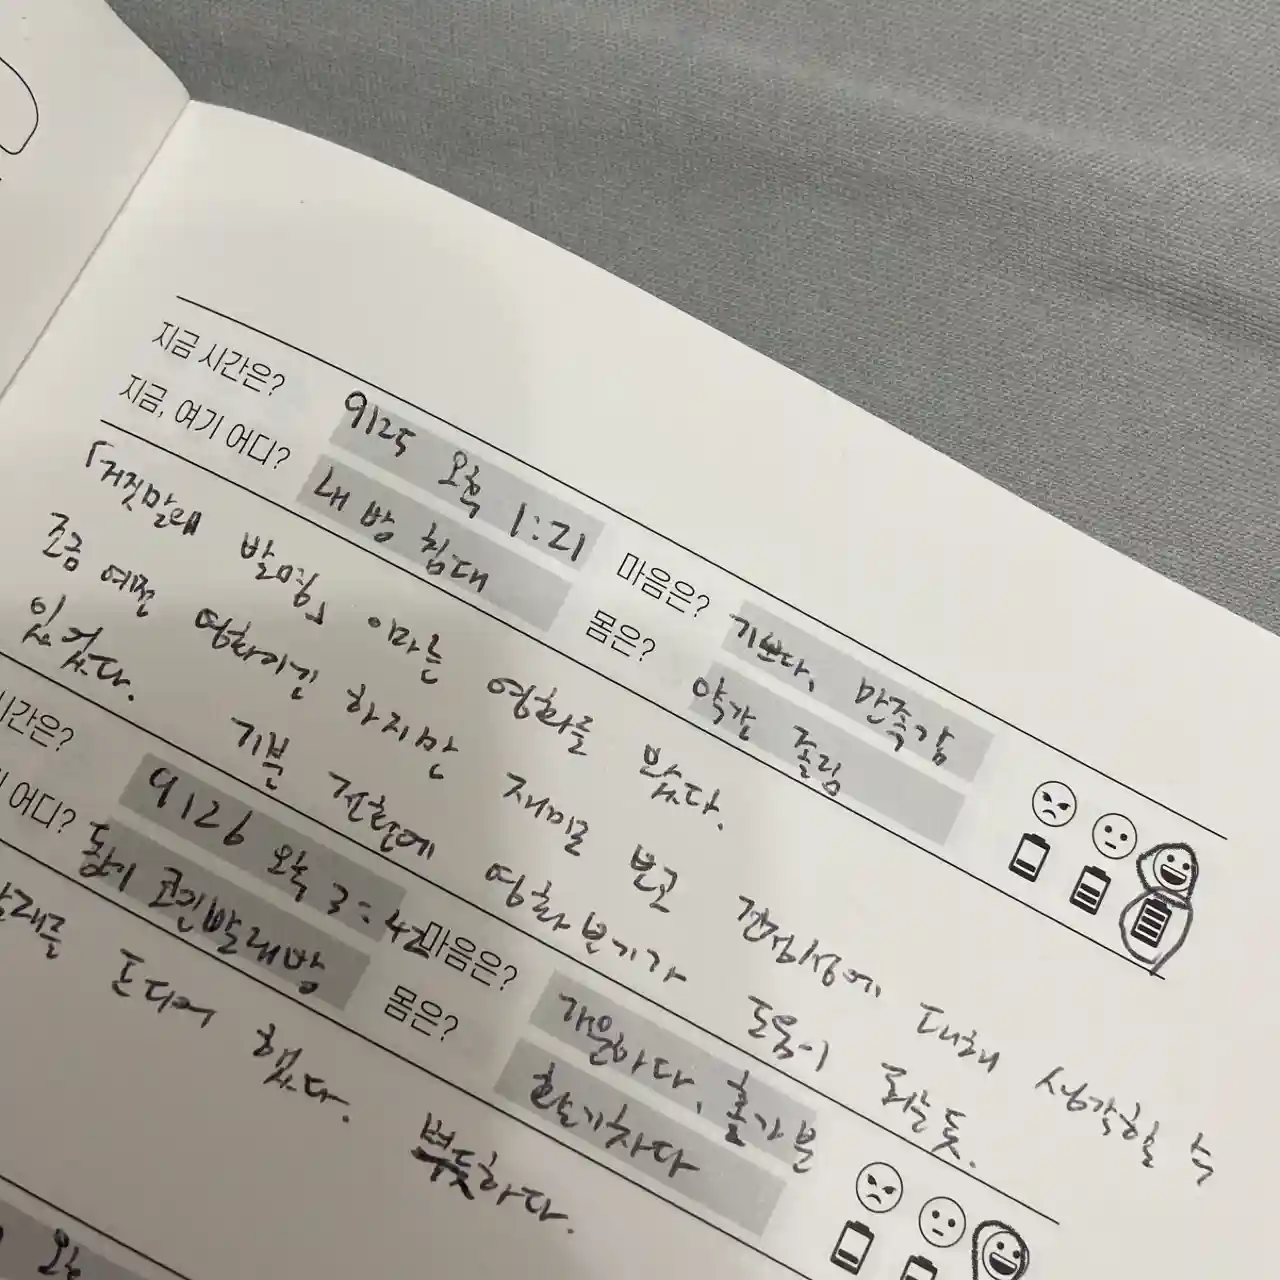 지금 시간은? 9125 오후 1:21 마음은? 기쁘다, 만족감
지금, 여기 어디? 내 방 침대 몸은? 약간 졸림
「거짓말의 발명」 이라는 영화를 봤다.
조금 예전 영화이긴 하지만 재미로 보고 진정성에 대해 생각할 수
있었다. 기분 전환에 영화보기가 도움이 되는 듯.
시간은? 9126 오후 3:42 마음은? 개운하다, 홀가분
어디? 동네 코인빨래방 몸은? 활기차다
빨래를 드디어 했다. 뿌듯하다.
오후